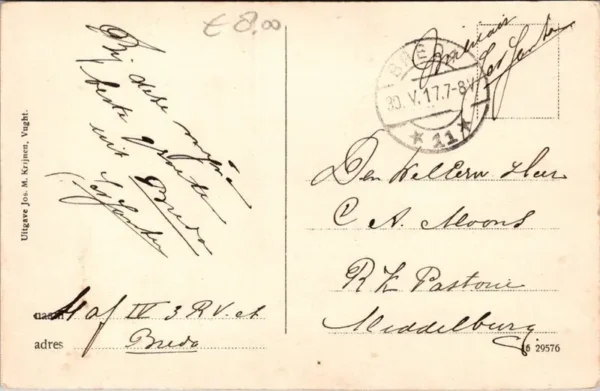 € 8.00
Bij deze mijne
beste Groeten
uit Breda
Uitgave Jos. M. Krijnen, Vught.
naam
IV 3 R.V.A
adres Breda
BREDA
30.V.17.7-8V
11
Den WelEerw. Heer
C A. Moons
R K Pastorie
Middelburg.
29576